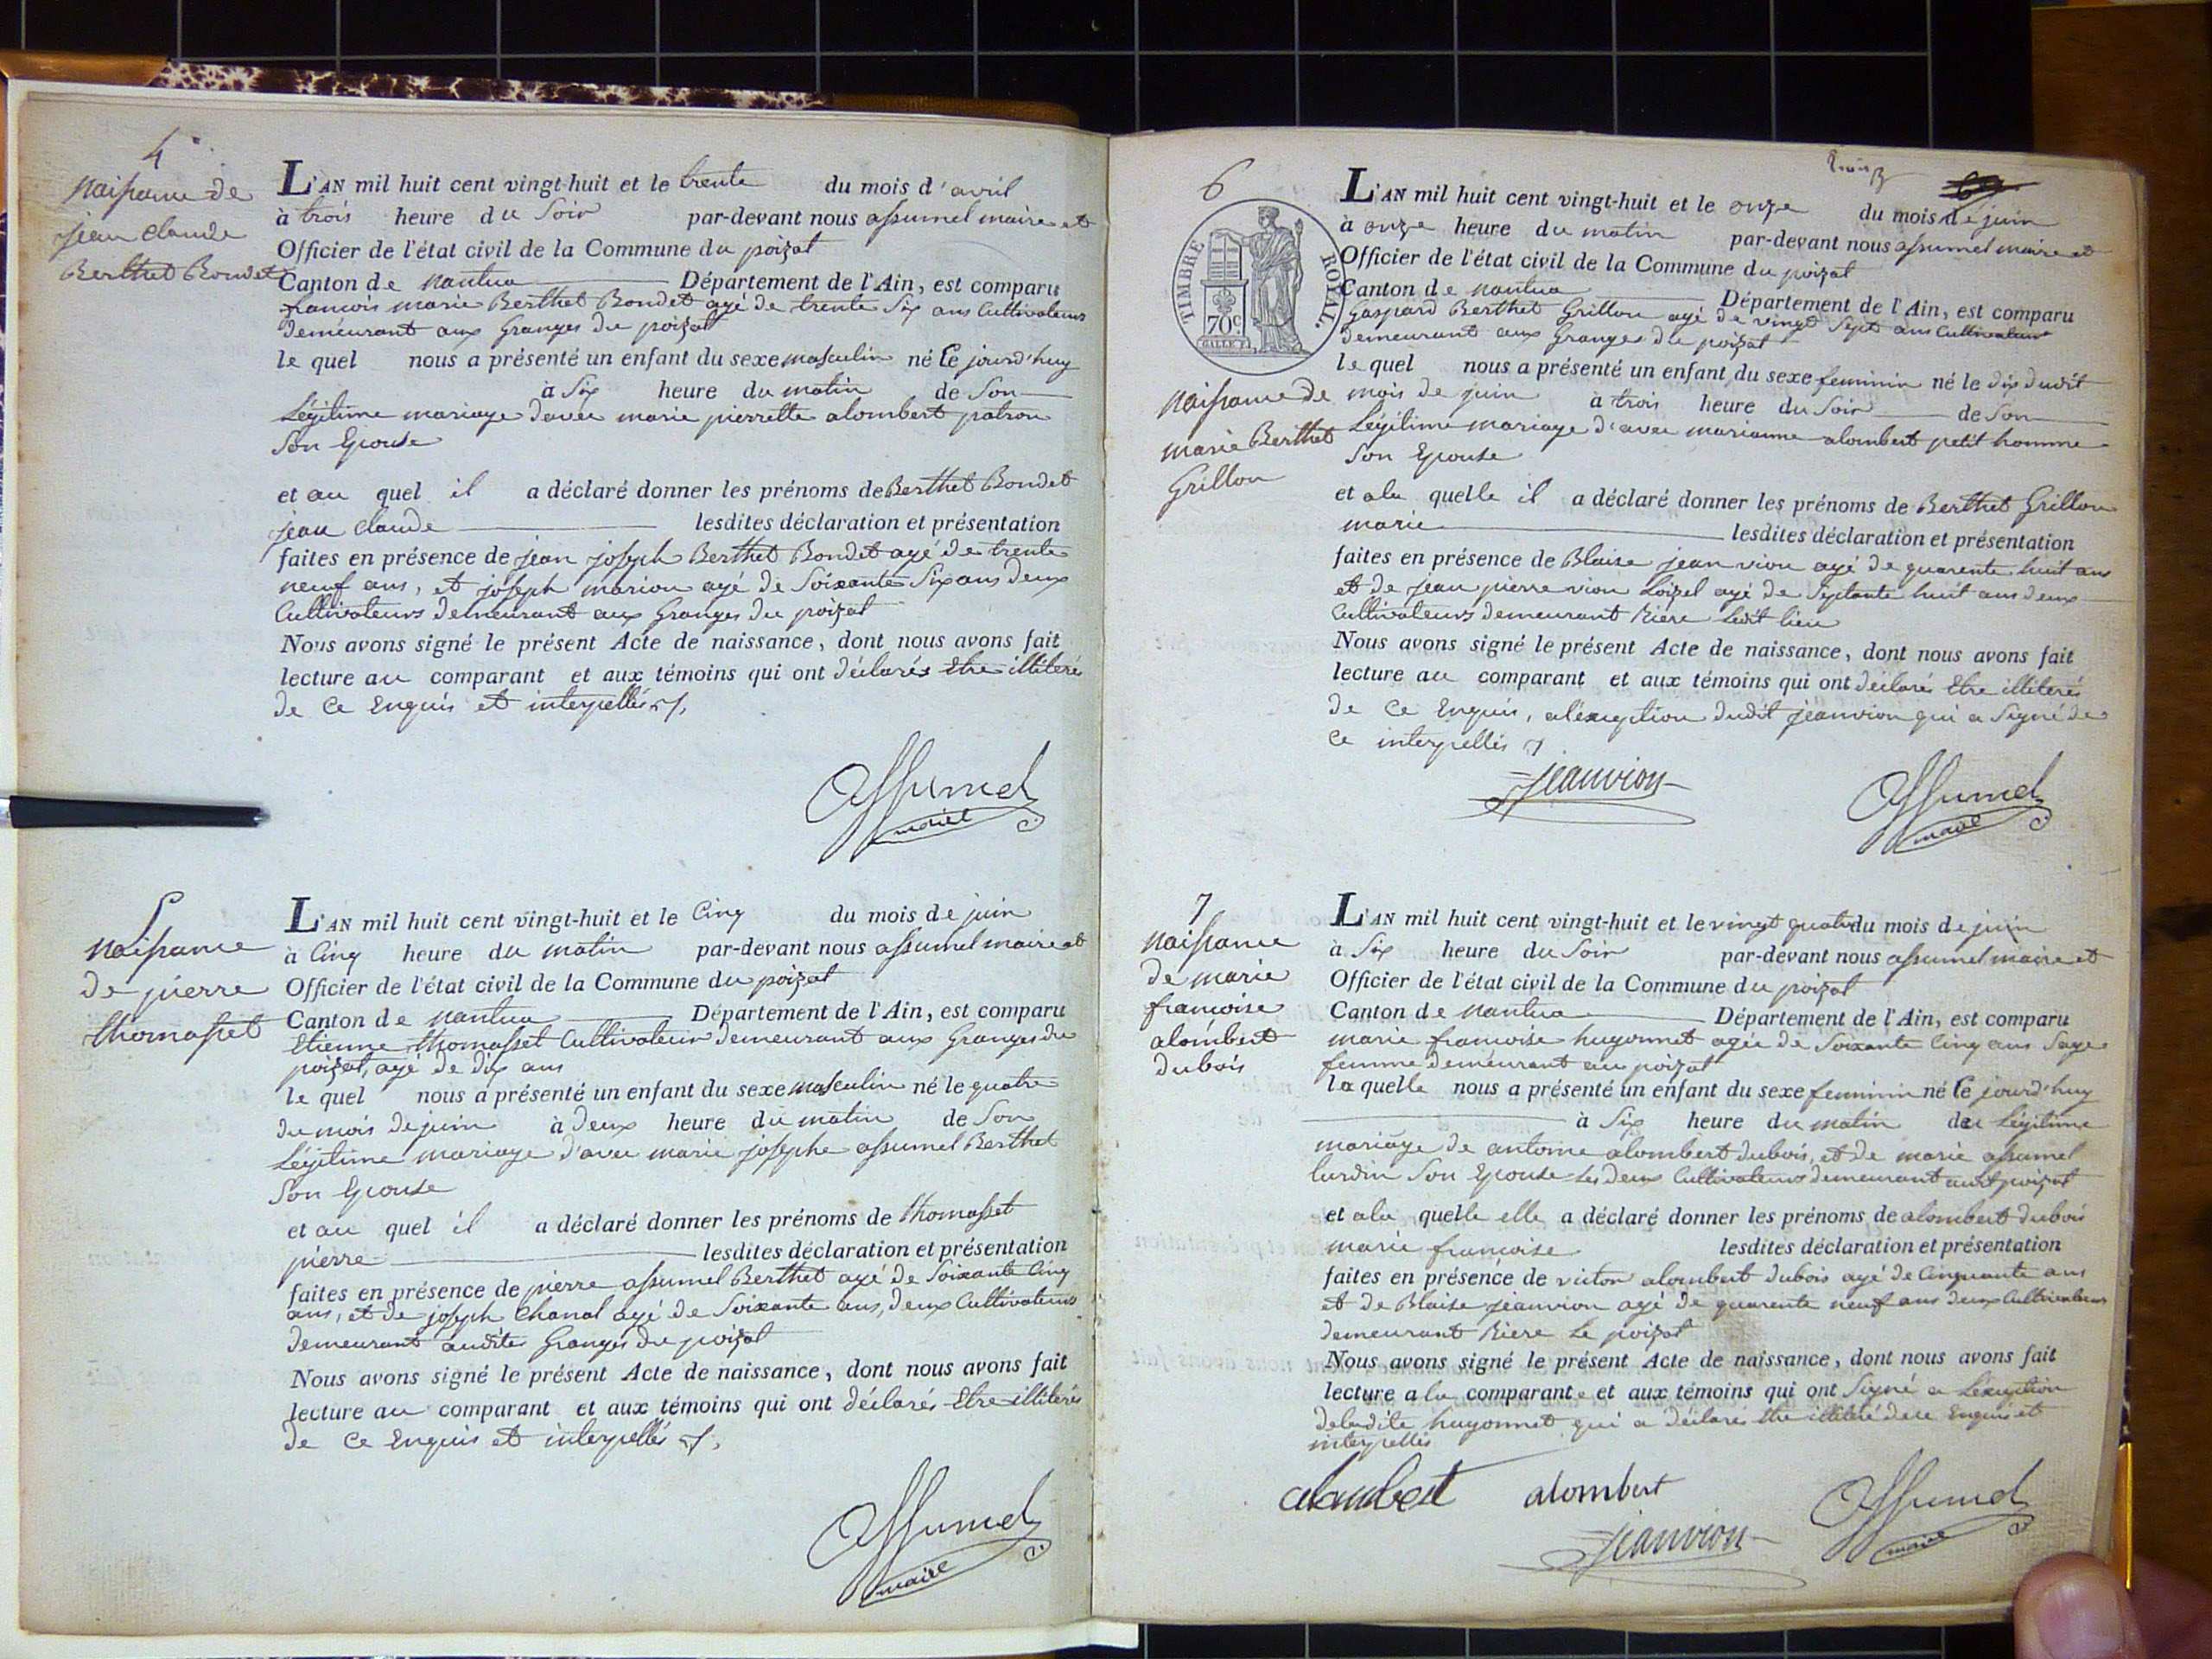 4°
naissance de
jean claude
Berthet Bondet
L'AN mil huit cent vingt-huit et le trente du mois d'avril
à trois heure du Soir par-devant nous assumel maire et
Officier de l'état civil de la Commune du poizat
Canton de nantua Département de l'Ain, est comparu
francois marie Berthet Bondet agé de trente Six ans Cultivateur
demeurant aux Granges du poizat
le quel nous a présenté un enfant du sexe masculin né Ce jourd'huy
à Six heure du matin de Son
Légitime mariage d'avec marie pierrette alombert patron
Son Epouse
et au quel il a déclaré donner les prénoms de Berthet Bondet
jean claude lesdites déclaration et présentation
faites en présence de jean joseph Berthet Bondet agé de trente
neuf ans, et joseph marion agé de Soixante Six ans deux
Cultivateurs demeurant aux Granges du poizat
Nous avons signé le présent Acte de naissance, dont nous avons fait
lecture au comparant et aux témoins qui ont déclarés Etre illiterés
de Ce Enquis et interpellés
assumel
maire
5
naissance
de pierre
thomasset
L'AN mil huit cent vingt-huit et le Cinq du mois de juin
à Cinq heure du matin par-devant nous assumel maire et
Officier de l'état civil de la Commune du poizat
Canton de nantua Département de l'Ain, est comparu
Etienne thomasset Cultivateur demeurant aux Granges du
poizat, agé de dix ans
le quel nous a présenté un enfant du sexe masculin né le quatre
du mois de juin à deux heure du matin de Son
Légitime mariage d'avec marie josephe assumel Berthet
Son Epouse
et au quel il a déclaré donner les prénoms de thomasset
pierre lesdites déclaration et présentation
faites en présence de pierre assumel Berthet agé de Soixante Cinq
ans, et de joseph Chanal agé de Soixante ans, deux Cultivateurs
demeurant audites Granges du poizat
Nous avons signé le présent Acte de naissance, dont nous avons fait
lecture au comparant et aux témoins qui ont déclarés Etre illiterés
de Ce Enquis et interpellés
assumel
maire
6
TIMBRE ROYAL.
70c
naissance de
marie Berthet
Grillon
L'AN mil huit cent vingt-huit et le onze du mois de juin
à onze heure du matin par-devant nous assumel maire et
Officier de l'état civil de la Commune du poizat
Canton de nantua Département de l'Ain, est comparu
Gaspard Berthet Grillon agé de vingt Sept ans Cultivateur
demeurant aux Granges du poizat
le quel nous a présenté un enfant du sexe feminin né le dix dudit
mois de juin à trois heure du Soir de Son
Légitime mariage d'avec marianne alombert petit homme
Son Epouse
et ala quelle il a déclaré donner les prénoms de Berthet Grillon
marie lesdites déclaration et présentation
faites en présence de Blaise jeanvion agé de quarente huit ans
et de jean pierre vion Loizel agé de Septante huit ans deux
Cultivateurs demeurant Riere ledit lieu
Nous avons signé le présent Acte de naissance, dont nous avons fait
lecture au comparant et aux témoins qui ont déclarés Etre illiterés
de Ce Enquis, aléxeption dudit jeanvion qui a Signé de
Ce interpellés
jeanvion
assumel
maire
7
naissance
de marie
francoise
alombert
dubois
L'AN mil huit cent vingt-huit et le vingt quatre du mois de juin
à Six heure du Soir par-devant nous assumel maire et
Officier de l'état civil de la Commune du poizat
Canton de nantua Département de l'Ain, est comparu
marie francoise hugonnet agée de Soixante Cinq ans Sage
femme demeurant au poizat
la quelle nous a présenté un enfant du sexe feminin né Ce jourd'huy
à Six heure du matin du Légitime
mariage de antoine alombert dubois, et de marie assumel
lurdin Son Epouse Les deux Cultivateurs demeurant audt poizat
et ala quelle elle a déclaré donner les prénoms de alombert dubois
marie francoise lesdites déclaration et présentation
faites en présence de victor alombert dubois agé de Cinquante ans
et de Blaise jeanvion agé de quarente neuf ans deux Cultivateurs
demeurant Riere Le poizat
Nous avons signé le présent Acte de naissance, dont nous avons fait
lecture a la comparante et aux témoins qui ont Signé a Lexeption
deladite hugonnet qui a déclaré Etre illiteré de Ce Enquis et
interpellés
alombert alombert
jeanvion
assumel
maire